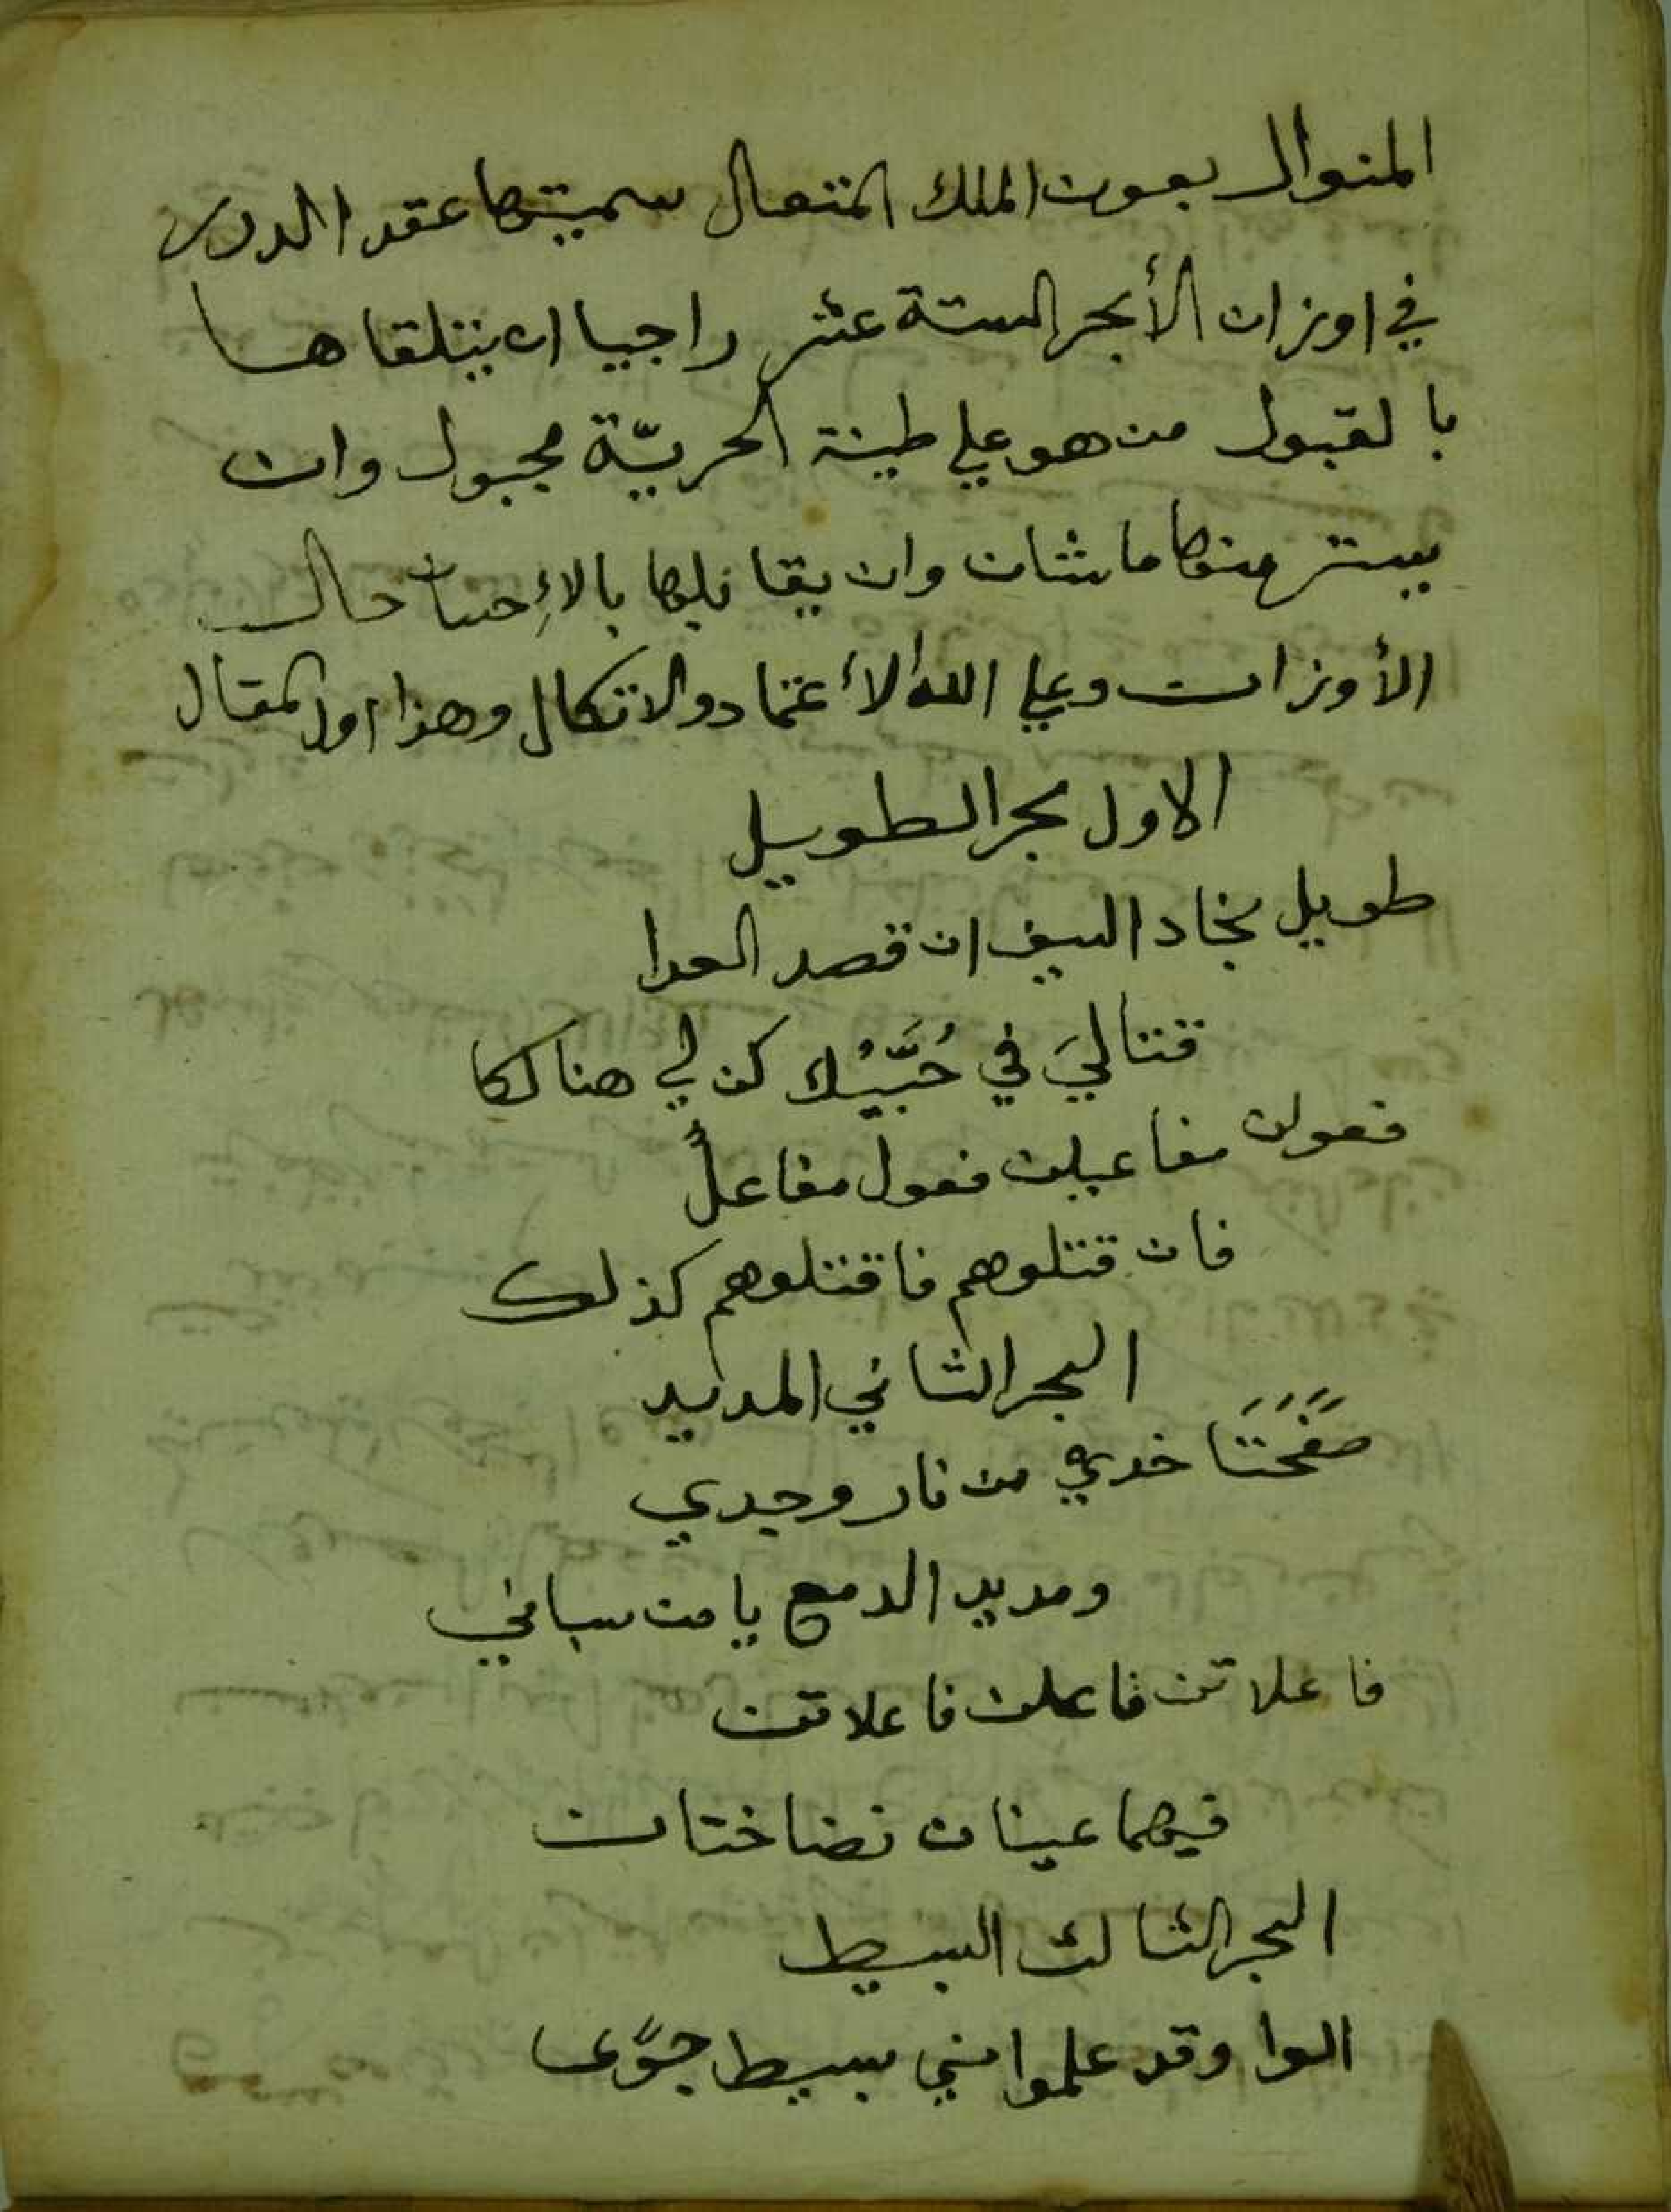 المنوال بعون الملك المتعال سميتها عقد الدرر
في اوزان الأبحر الستة عشر راجيا ان يتلقاها
بالقبول من هو علي طينة الحريّة مجبول وان
يستر منها ما شان وان يقابلها بالإحسان حال
الأوزان وعلي الله الاعتماد والاتكال وهذا اول المقال
الاول بحر الطويل
طويل نجاد السيف ان قصد العدا
قتاليَ في حُبَّيْك كن لي هنالكا
فعولن مفاعيلن فعول مفاعلٌ
فان قتلوهم فاقتلوهم كذلك
البحر الثاني المديد
صَفْحَتَا خدي من نار وجدي
ومديد الدمع يا من سباني
فاعلاتن فاعلن فاعلاتن
فيهما عينان نضاختان
البحر الثالث البسيط
الوا وقد علموا مني بسيط جوًى